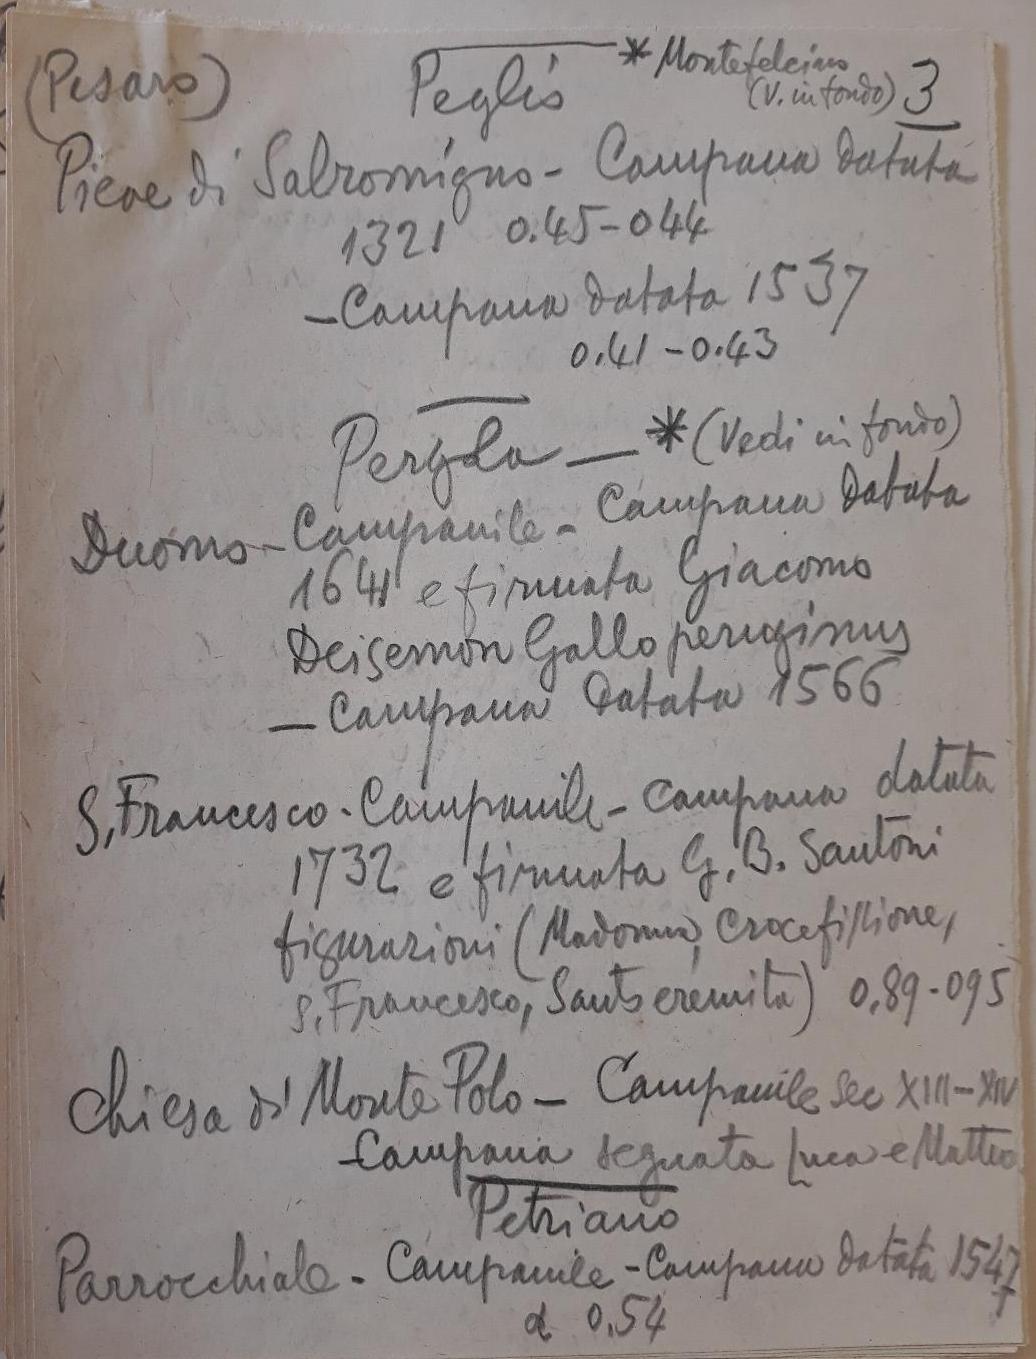 (Pesaro) Peglio * Montefelcino
(V. in fondo) 3
Pieve di Salromigno - Campana datata
1321 0.45-044
- Campana datata 1537
0.41-0.43
Pergola - * (Vedi in fondo)
Duomo - Campanile - Campana Datata
1641 e firmata Giacomo
Deisemon Gallo peruginus
- Campana Datata 1566
S. Francesco - Campanile - Campana datata
1732 e firmata G. B. Santoni
figurazioni (Madonna, Crocefissione,
S. Francesco, Santo eremita) 0,89-095
Chiesa di Monte Polo - Campanile Sec XIII-XIV
- Campana segnata Luca e Matteo
Petriano
Parrocchiale - Campanile - Campana datata 1547
d 0,54